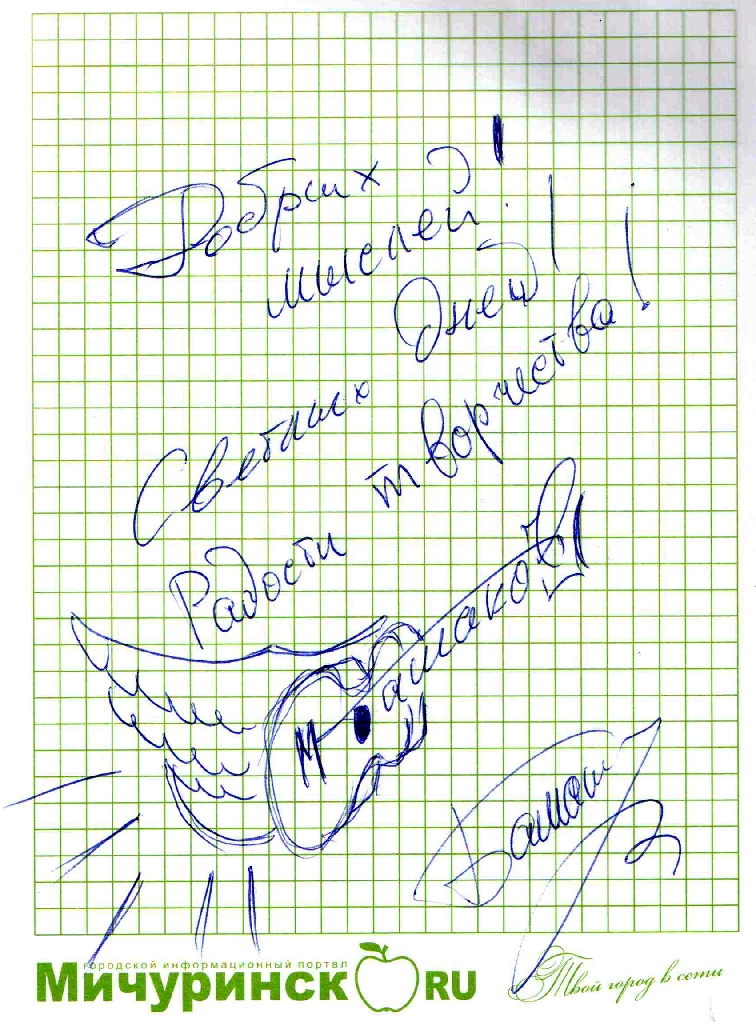 Добрых
мыслей!
Светлых дней!
Радости творчества!
городской информационный портал
Мичуринск RU
Твой город в сети